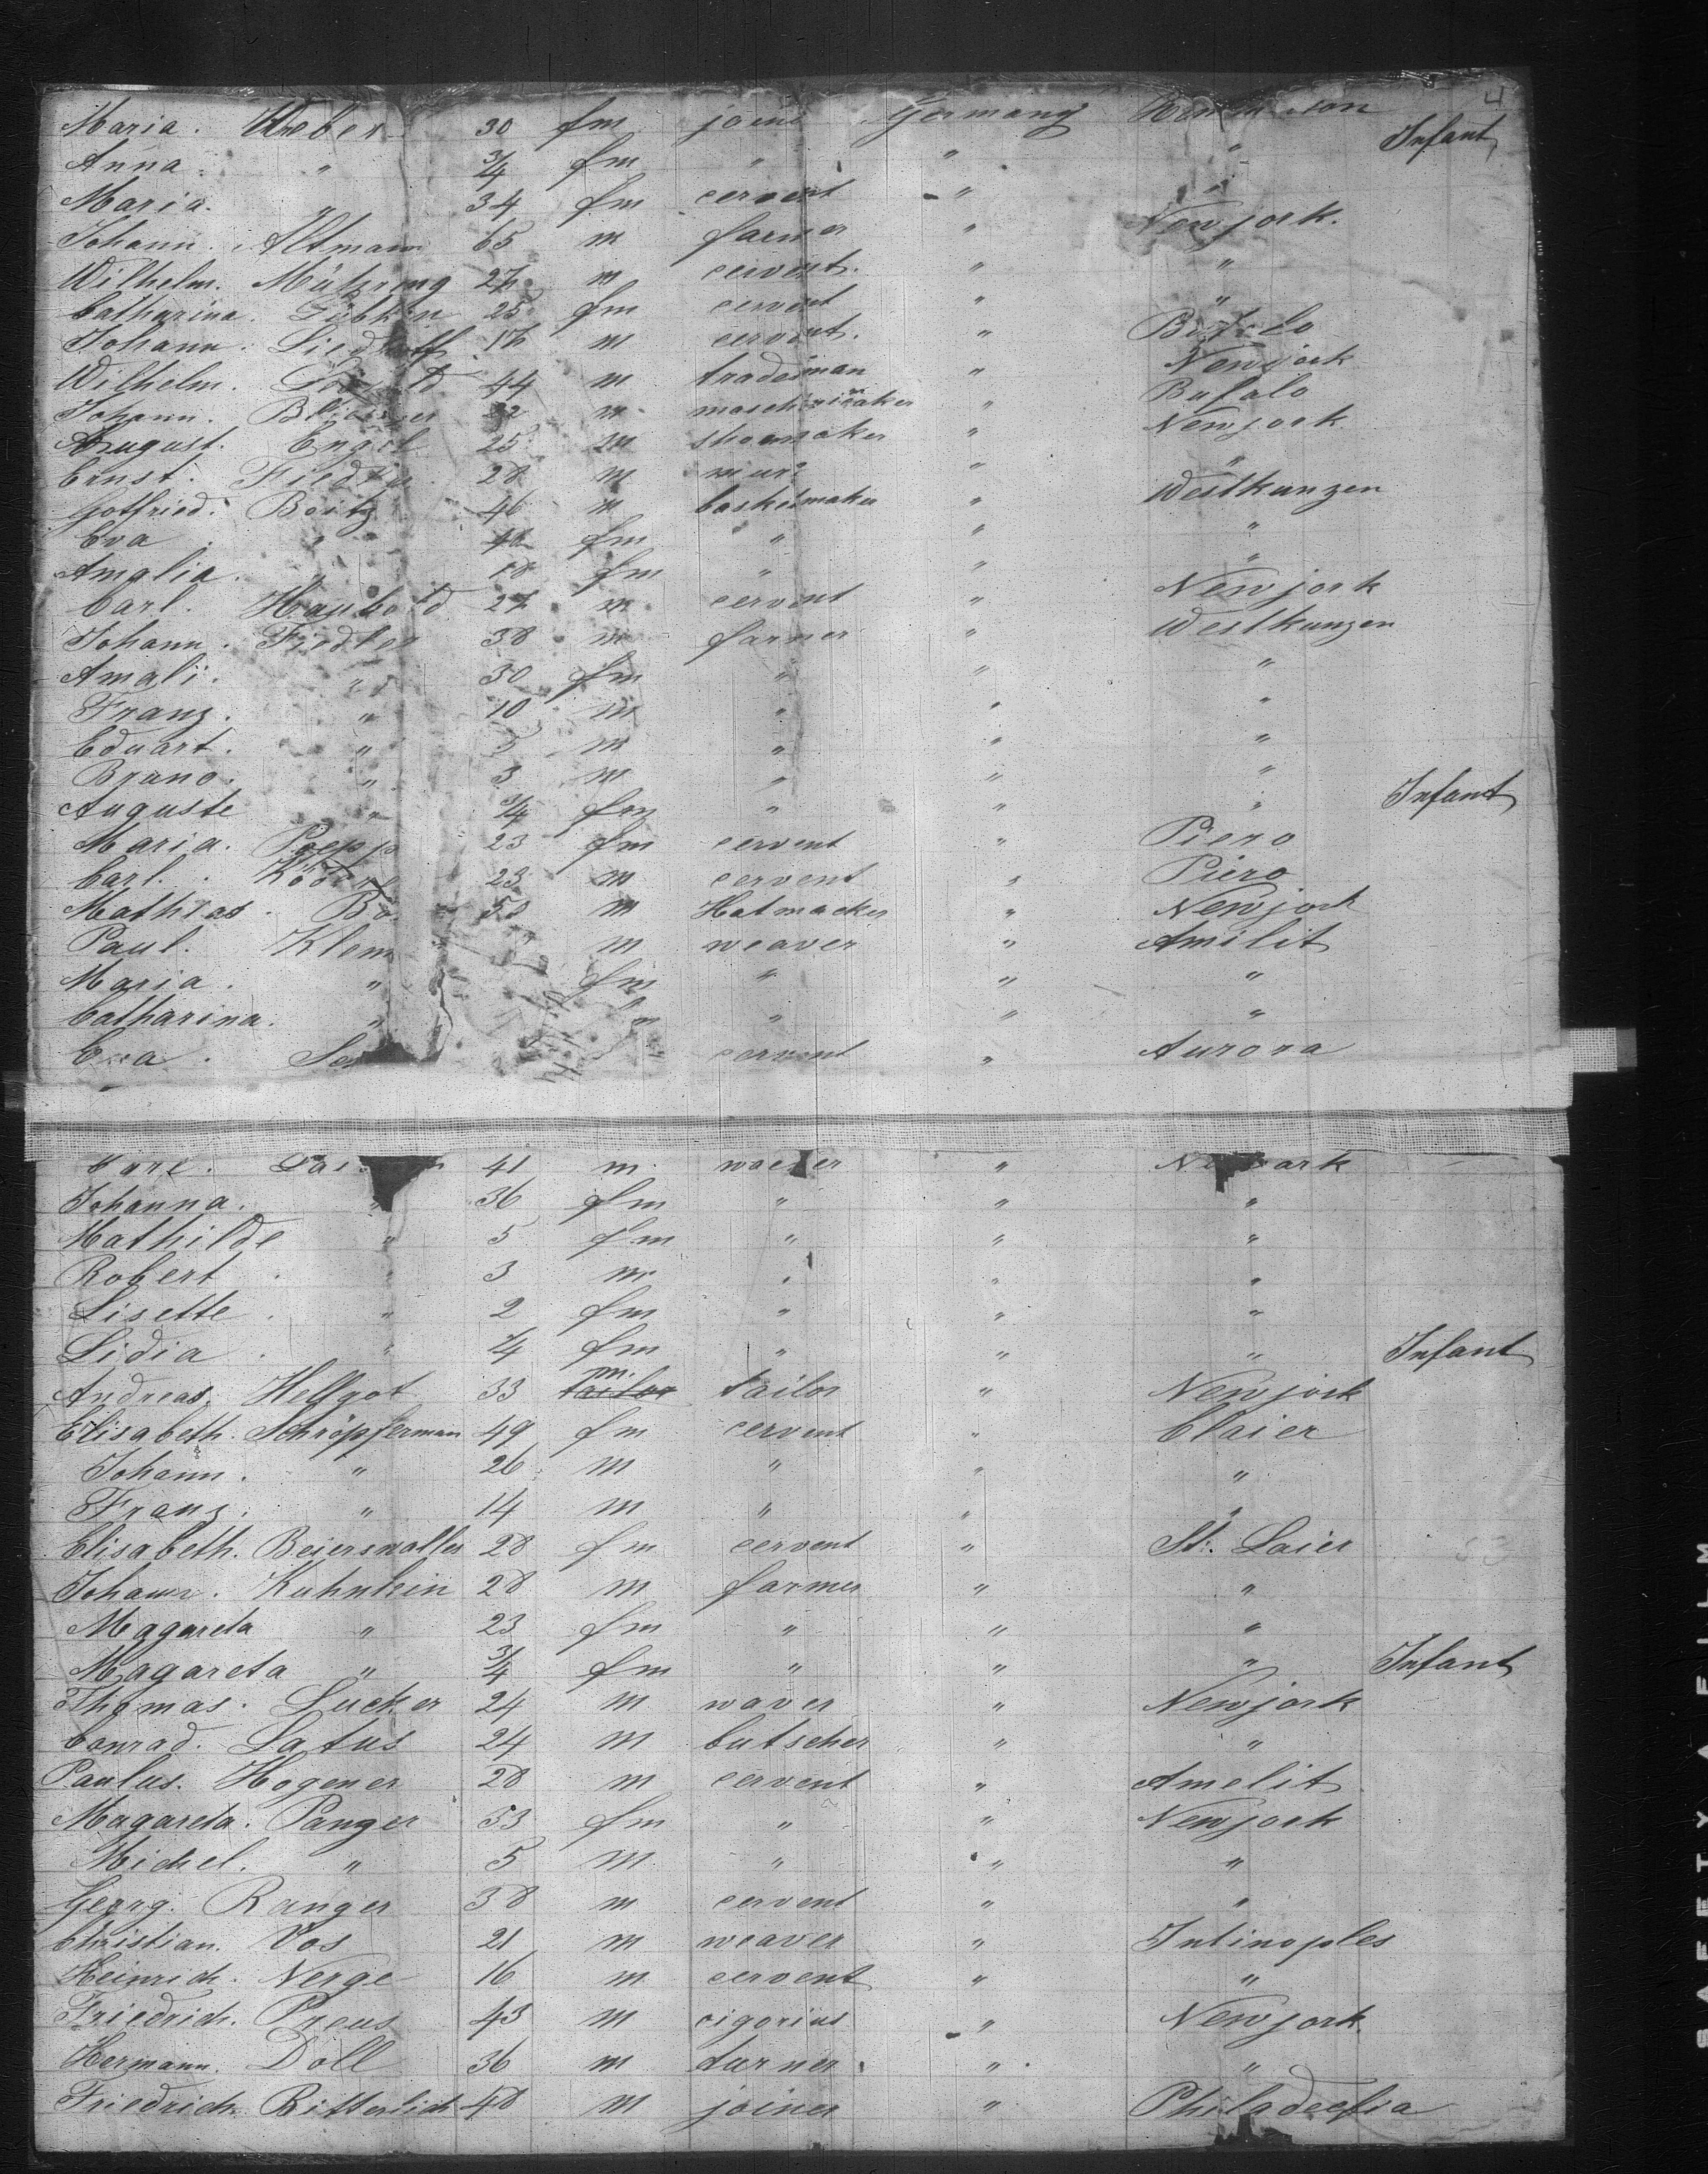 4
Maria. Weber 30 fm Germany
Anna " 3/4 fm " " " Infant
Maria. " 34 fm cervent " "
Johann. Altmann 65 m farmer " Newjork.
Wilhelm. 27 m cervent. " "
Catharina. 25 fm cervent " "
Johann. m cervent. " Bufalo
Wilhelm. 44 m tradesman " Newjork
Johann. m " Bufalo
August. Engel 25 m shoemaker " Newjork
Ernst. 28 m " "
Gotfried. Boitz 46 m basketmaker " Westkunzen
Eva " fm " " "
Amalia. " 18 fm " " "
Carl. Haubold 27 m cervent " Newjork
Johann. Fiedler 38 m farner " Westkunzen
Amali. " 30 fm " " "
Franz. " 10 m " " "
Eduart. " 5 m " " "
Bruno. " 3 m " " "
Auguste " fm " " " Infant
Maria. Poepp 23 fm cervent " Piero
Carl. 23 m cervent " Piero
Mathias. m Hatmacker " Newjork
Paul. Klem m weaver " Amilit
Maria. " fm " " "
Catharina. " " " "
cervent " Aurora
Carl. 41 m "
Johanna. " 36 fm " " "
Mathilde " 5 fm " " "
Robert " 3 m " " "
Lisette " 2 fm " " "
Lidia " fm " " " Infant
Andreas. Hellgot 33 m. tailor tailor " Newjork
Elisabeth. Schröpferman 49 fm cervent " Claier
Johann. " 26 m " " "
Franz. " 14 m " " "
Elisabeth. Beierswalter 28 fm cervent " St. Laier
Johann. Kuhnlein 28 m farmer " "
Magareta " 23 fm " " "
Magareta " 3/4 fm " " " Infant
Thomas. Lucker 24 m waver " Newjork
Conrad. Latus 24 m butscher " "
Paulus. Hogener 28 m cervent " Amelit
Magareta. Panger 53 fm " " Newjork
Michel. " 5 m " " "
Georg. Ranger 38 m cervent " "
Christian. Vos 21 m weaver " Intinoples
Heinrich. Nerge 16 m cervent " "
Friedrich. Preus 43 m " Newjork.
Hermann. Doll 36 m turner " "
Friedrich Ritterlich 48 m joiner " Philadeefia
SAFETY FILM